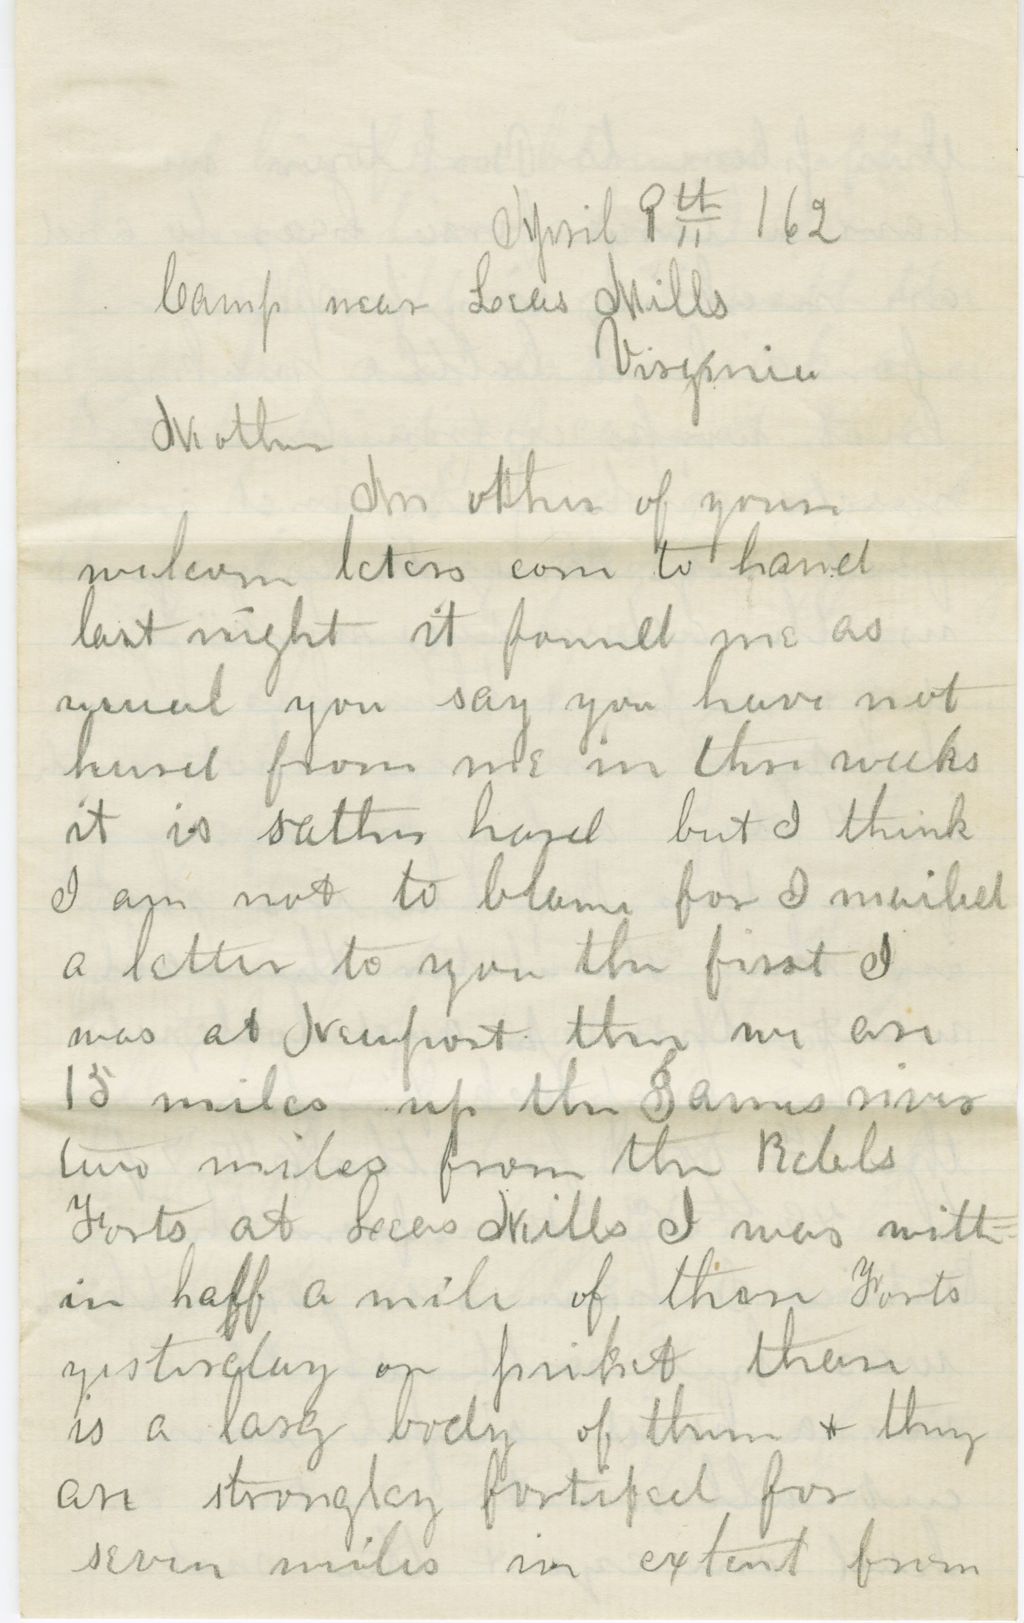 April 9th 162
Camp near Lees Mills
Virginia
Mother
An other of youre
welcom leters com to hand
last night it found me as
usual you say you have not
hurd from me in thre weeks
it is rather hard but I think
I am not to blame for I mailed
a letter to you the first I
was at Newport then we are
15 miles up the James river
two miles from the Rebels
Forts at Lees Mills I was with=
in haff a mile of thare Forts
yesterday on picket thare
is a larg body of them & they
are strongley fortified for
seven miles in extent from